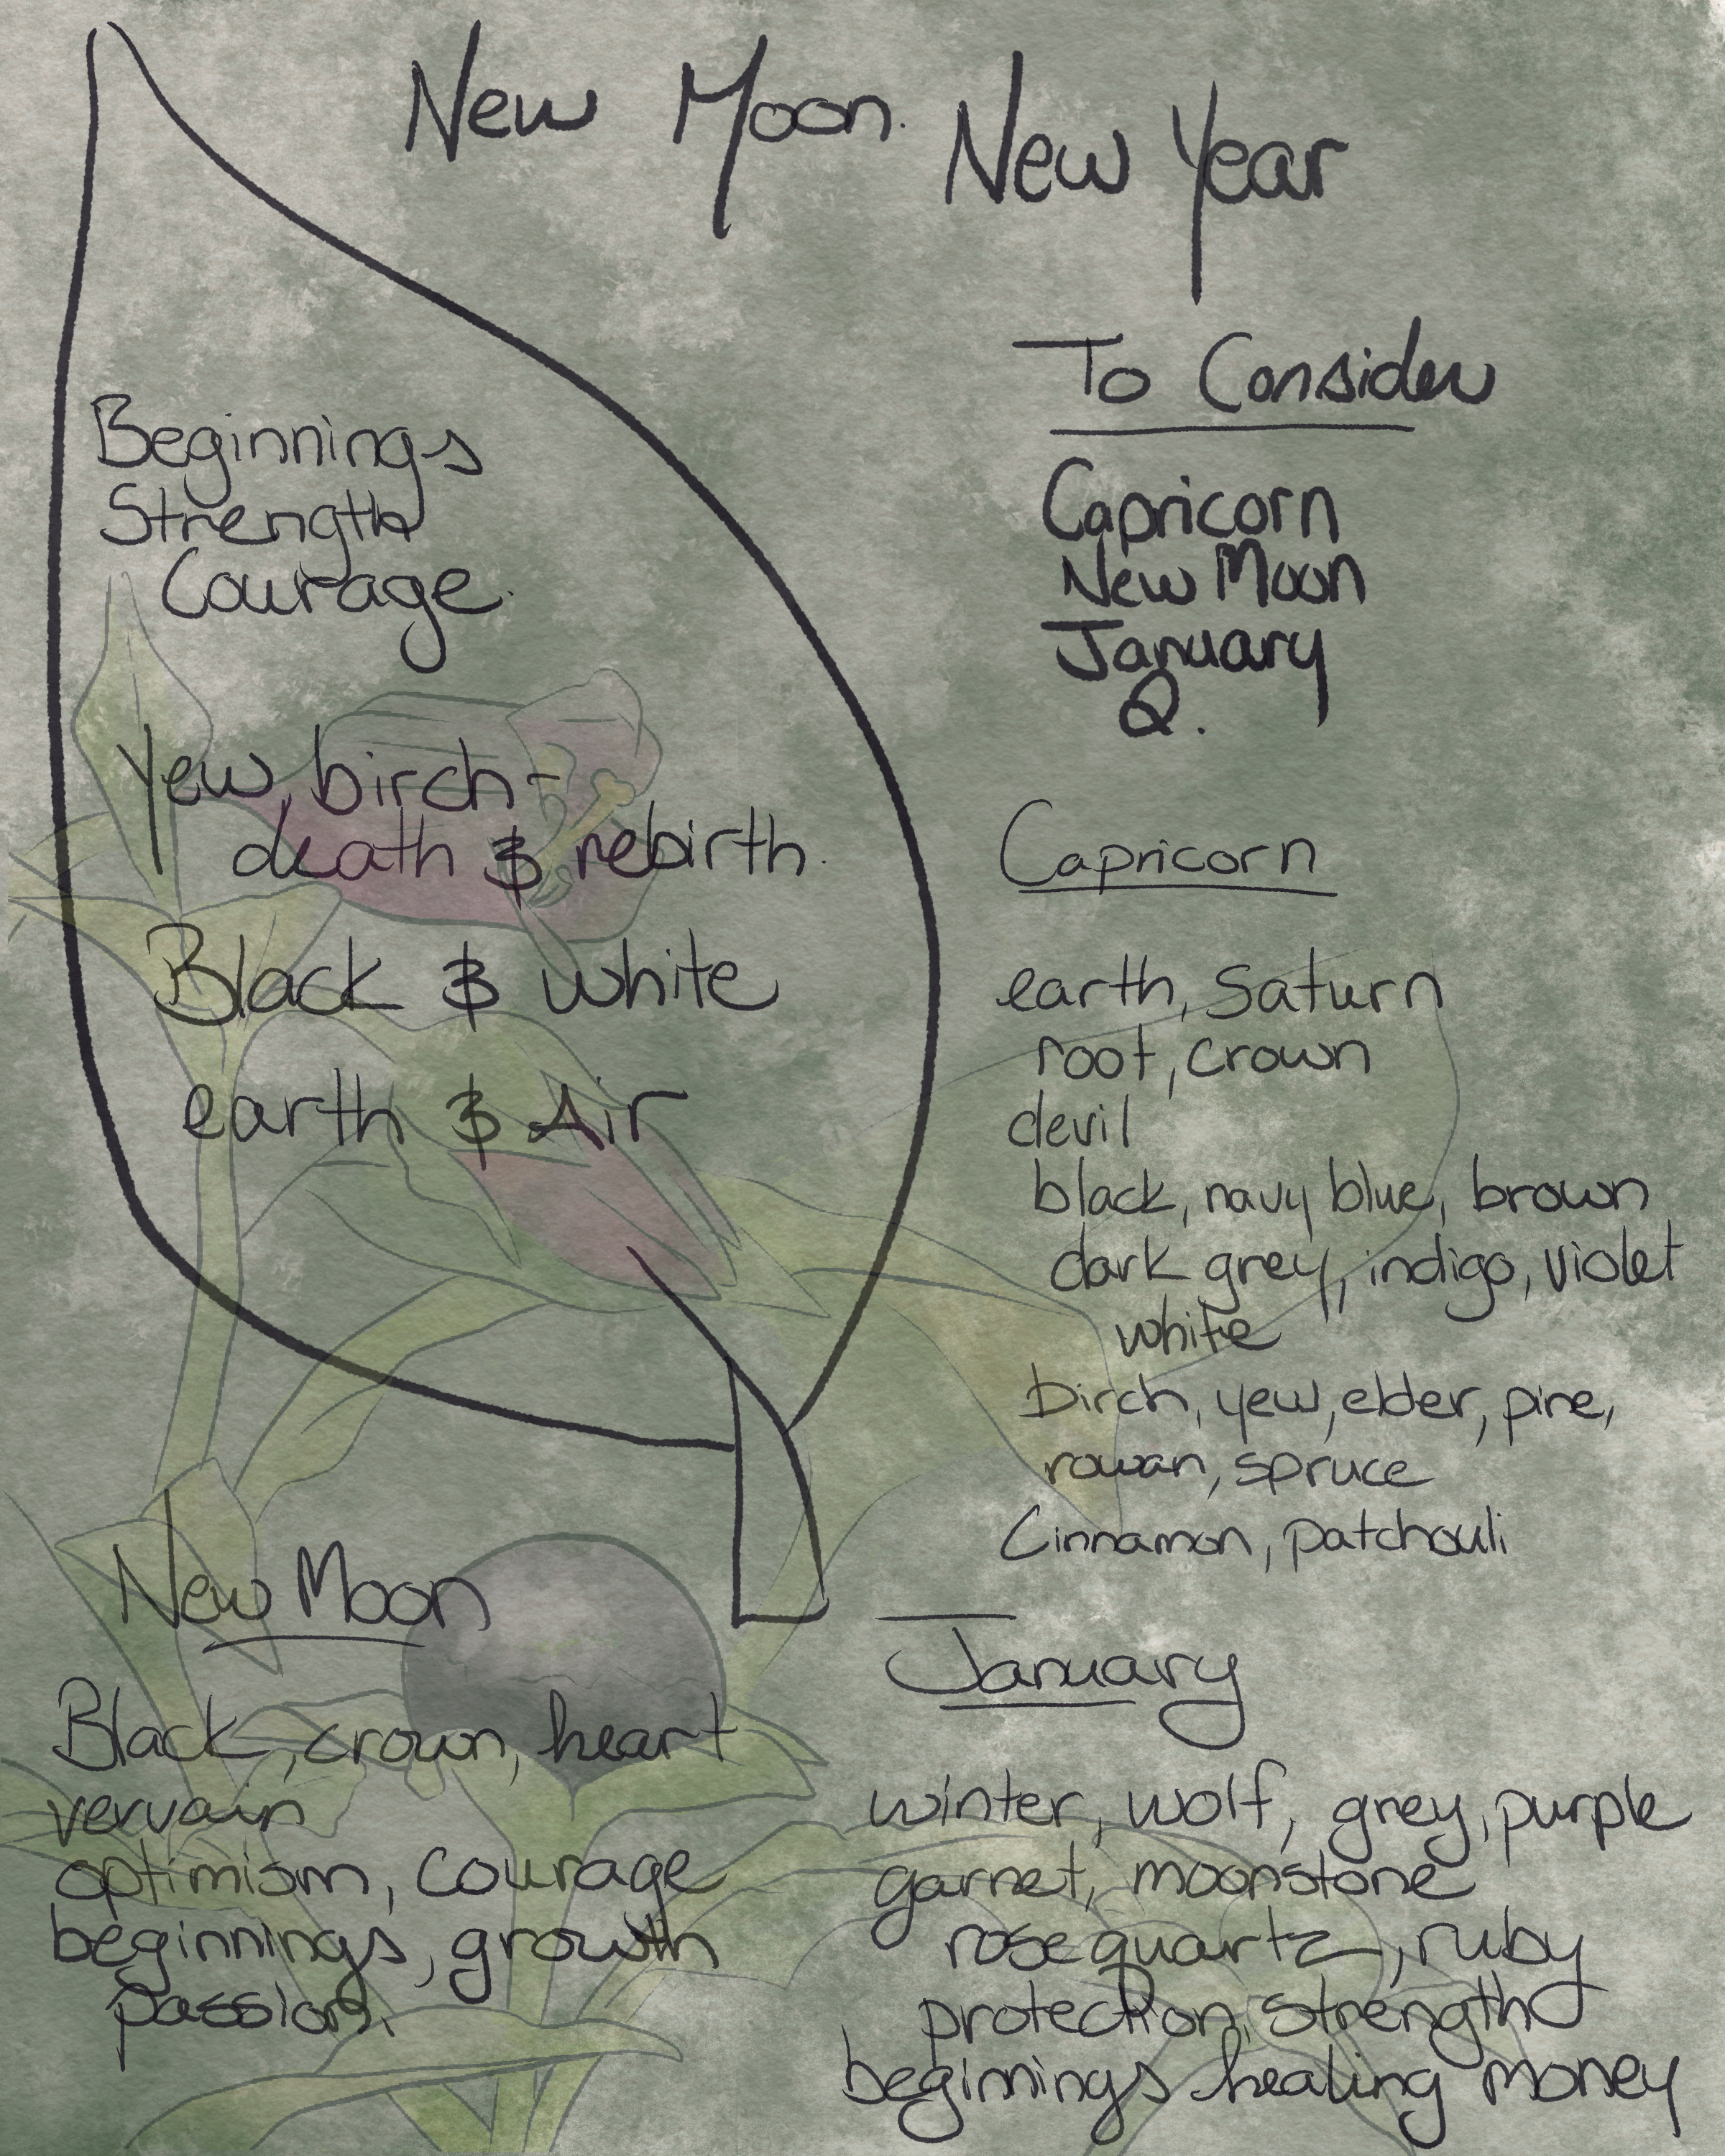 New Moon. New Year
Beginnings
Strength
Courage.
Yew, birch -
death & rebirth.
Black & white
earth & Air
To Consider
Capricorn
New Moon
January
Q.
Capricorn
earth, Saturn
root, crown
devil
black, navy blue, brown
dark grey, indigo, violet
white
birch, yew, elder, pine,
rowan, spruce
Cinnamon, patchouli
New Moon
Black, crown, heart
vervain
optimism, courage
beginnings, growth
passion.
January
winter, wolf, grey, purple
garnet, moonstone
rose quartz, ruby
protection, strength
beginnings healing money